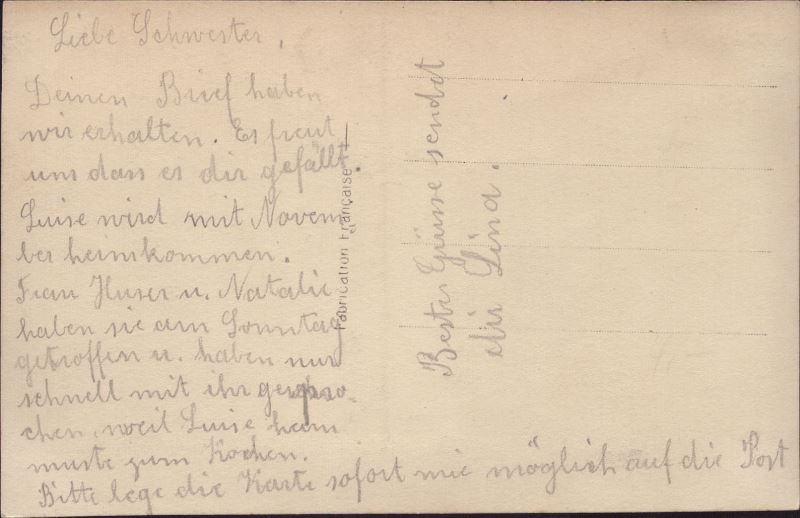 Liebe Schwester,
Deinen Brief haben
wir erhalten. Es freut
uns dass es dir gefällt.
Luise wird mit Novem
ber heimkommen.
Frau Huser u. Natalie
haben sie am Sonntag
getroffen u. haben nur
schnell mit ihr gespro-
chen, weil Luise heim
muste zum Kochen.
Bitte lege die Karte sofort wie möglich auf die Post
Fabrication Française
Beste Grüsse sendet
dir Lina.